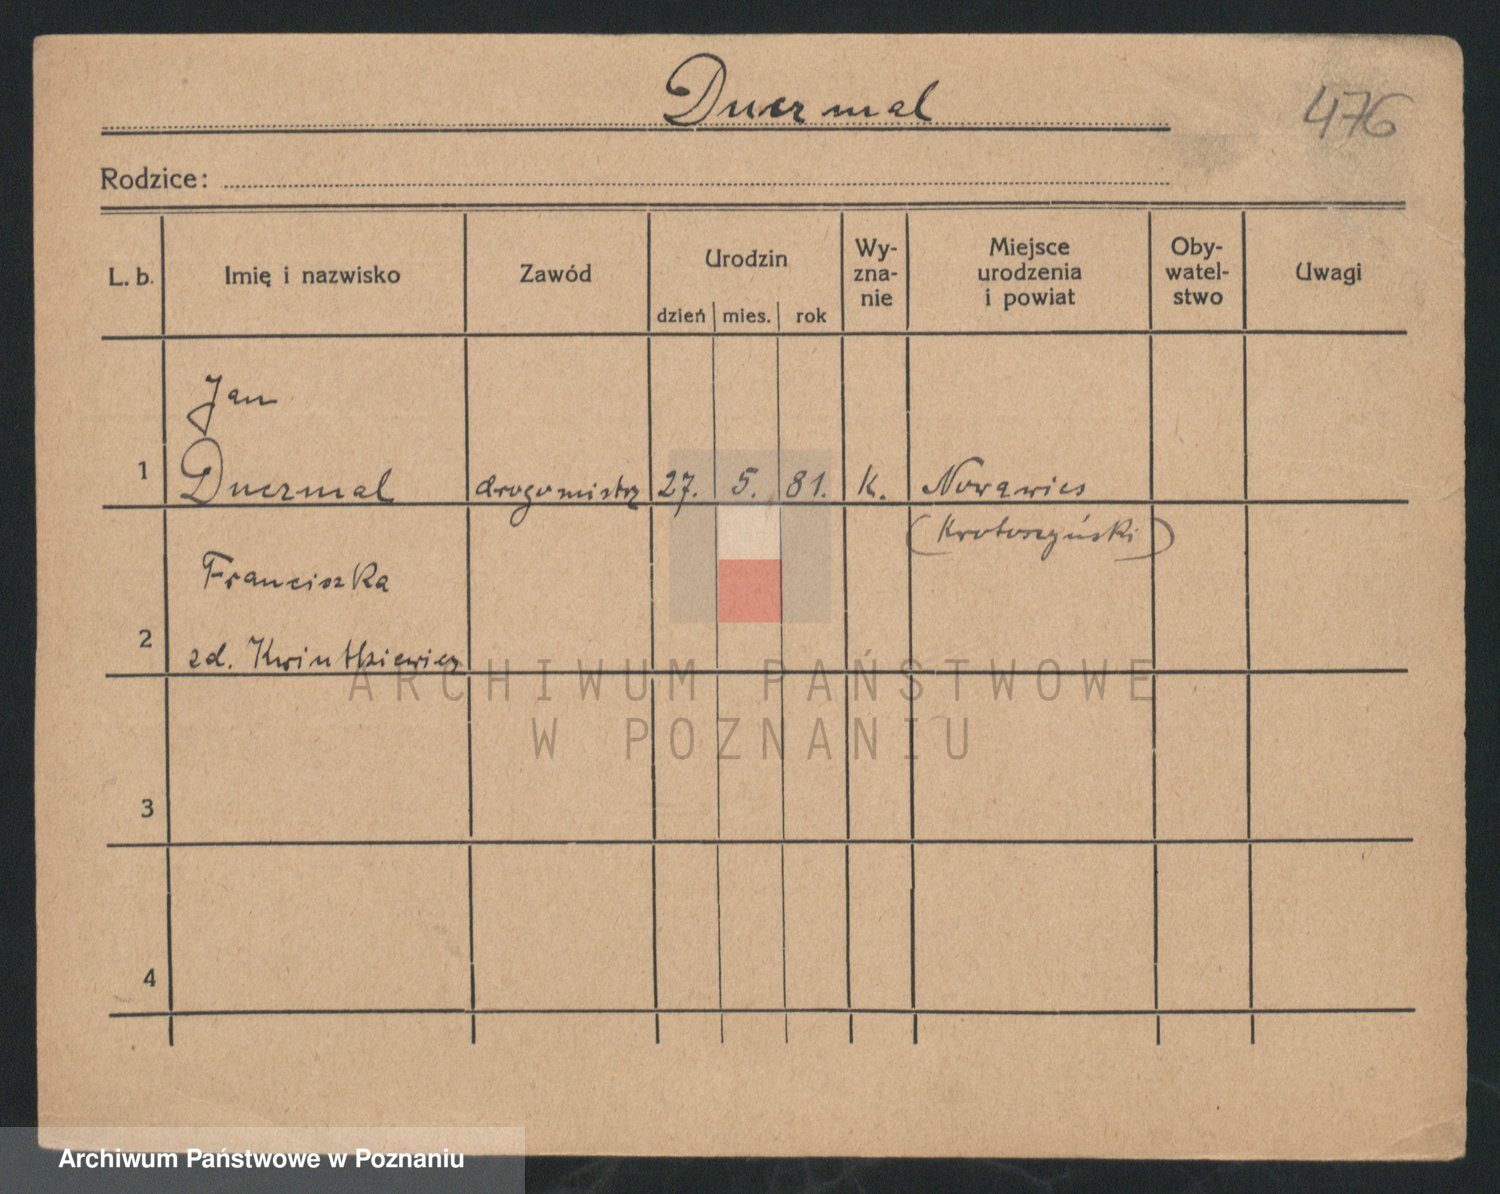 Duczmal
476
Rodzice:
L. b. Imię i nazwisko Zawód Urodzin dzień mies. rok Wy-zna-nie Miejsce urodzenia i powiat Oby-watel-stwo Uwagi
Jan
1 Duczmal drogomistrz 27. 5. 81. k. Nowawieś
(Krotoszyński)
Franciszka
2 zd. Kwintkiewicz
3
4
ARCHIWUM PAŃSTWOWE
W POZNANIU
Archiwum Państwowe w Poznaniu